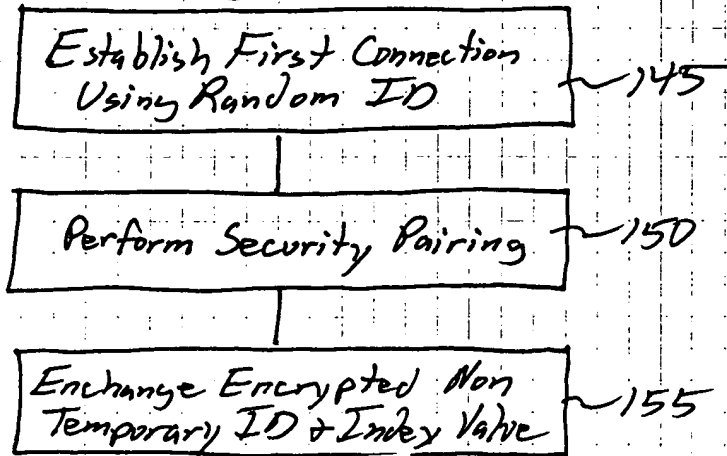 Establish First Connection
Using Random ID
145
Perform Security Pairing
150
Enchange Encrypted Non
Temporary ID & Index Value
155